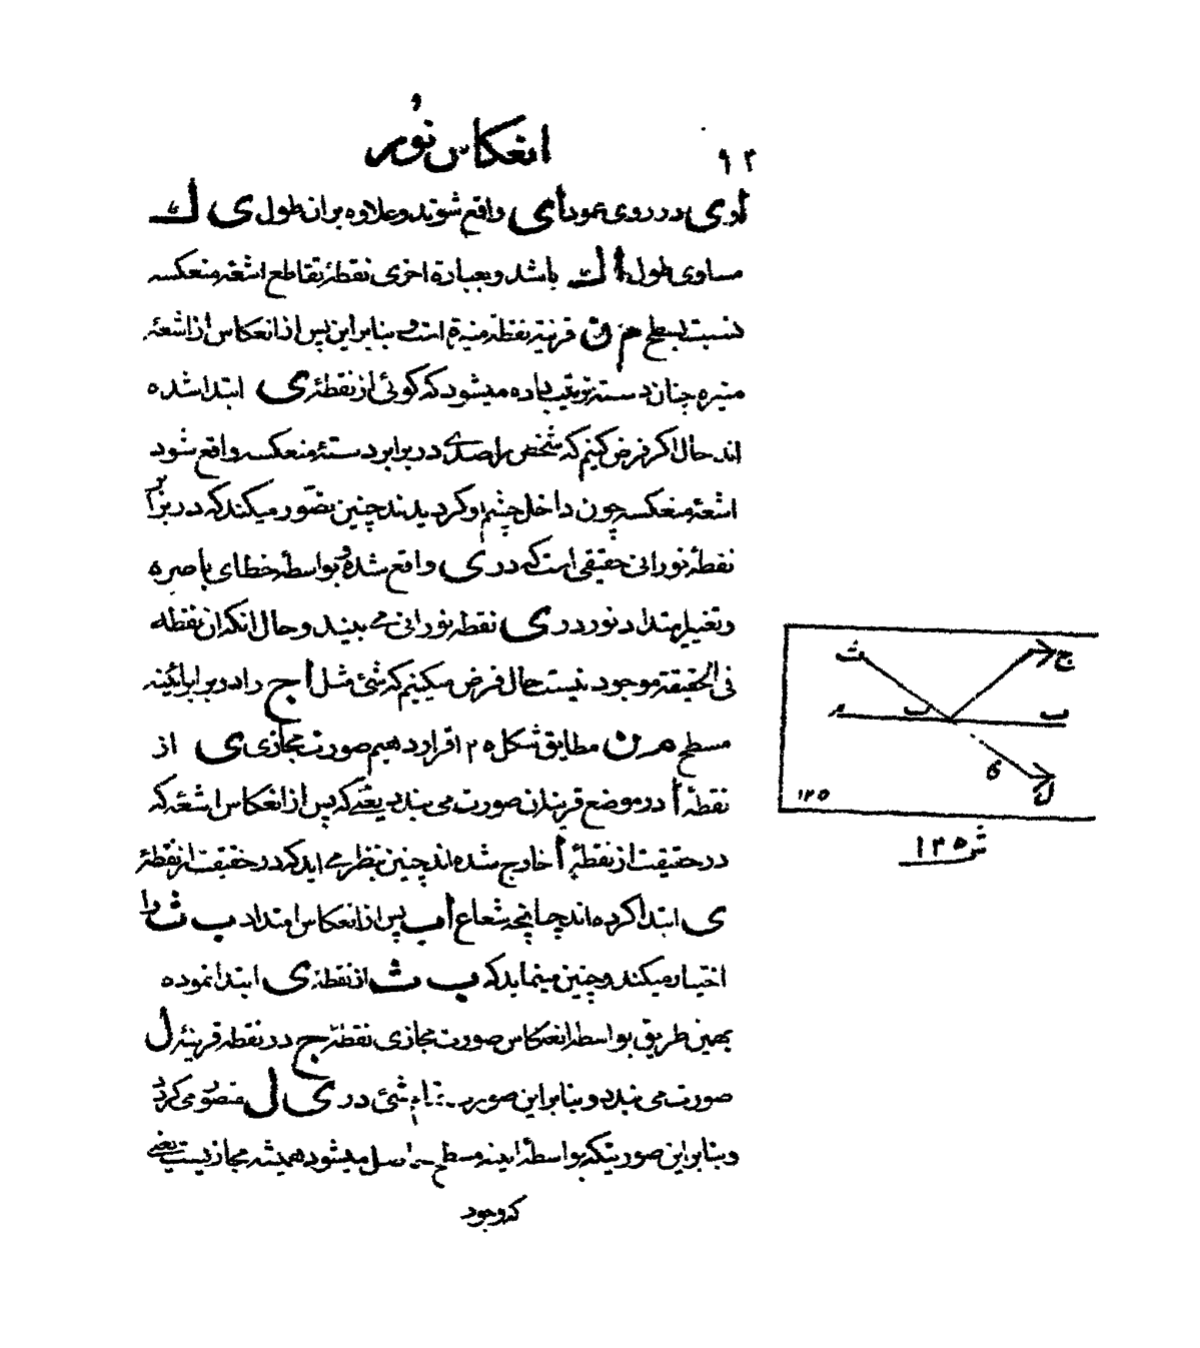 ۹۲
انعکاس نور
أوی در روی عمود أی واقع شوند و علاوه بر ان طول ی ك
مساوی طول أ ك باشد و بعبارة اخری نقطهٔ تقاطع اشعهٔ منعکسه
نسبت بسطح م ق قرنیهٔ نقطهٔ منیرهٔ است و بنابراین پس از انعکاس أز اشعهٔ
منیره چنان دسته ترتیب داده میشود که کوئی از نقطهٔ ی ابتدا شده
اند حال اکر فرض کنیم که شخص راصدی در برابر دستهٔ منعکسه واقع شود
اشعهٔ منعکسه چون داخل چشم او کردیدند چنین تصّور میکند که در برابر
نقطهٔ نورانی حقیقی است که در ی واقع شده و بواسطهٔ خطای باصره
و تغییر امتداد نور در ی نقطهٔ نورانی می بیند و حال انکه ان نقطه
فی الحقیقة موجود نیست حال فرض میکنیم که شئی مثل أ ج را در برابر ائینه
مسطح م ن مطابق شکل ۱۲۵ قرار دهیم صورت مجازی ی از
نقطهٔ أ در موضع قرینه ان صورت می بندد یعنی که پس از انعکاس اشعهٔ که
در حقیقت از نقطهٔ أ خارج شده اند چنین بنظر می اید که در حقیقت از نقطهٔ
ی ابتدا کرده اند چنانچه شعاع أب پس از انعکاس امتداد ب ث را
اختیار میکند و چنین مینماید که ب ث از نقطهٔ ی ابتدا نموده
بهمین طریق بواسطهٔ انعکاس صورت مجازی نقطهٔ ج در نقطهٔ قرینهٔ ل
صورت می بندد و بنابراین صورت شئی در ی ل متصّور می کردد
و بنابراین صورتیکه بواسطهٔ اینهٔ مسطح حاصل میشود همیشه مجازیست یعنی
که وجود
ث ج
ب ب
ی ل
۱۲۵
ش ۱۲۵